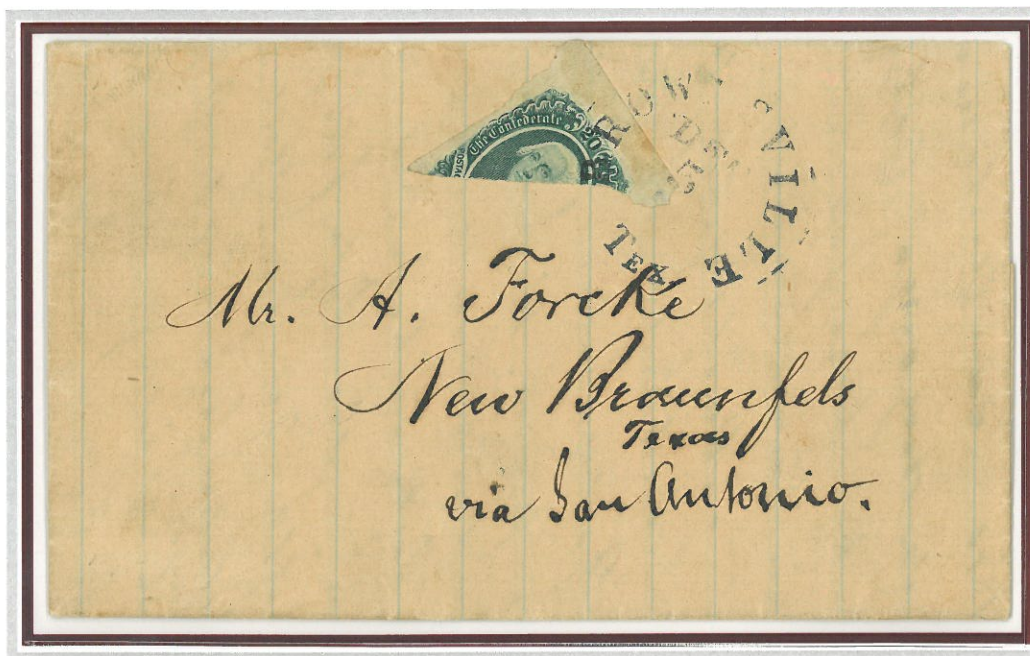 The Confederate
20
POSTAG
BROWNSVILLE
TEX
DE
Mr. A. Forcke
New Braunfels
Texas
via San Antonio.